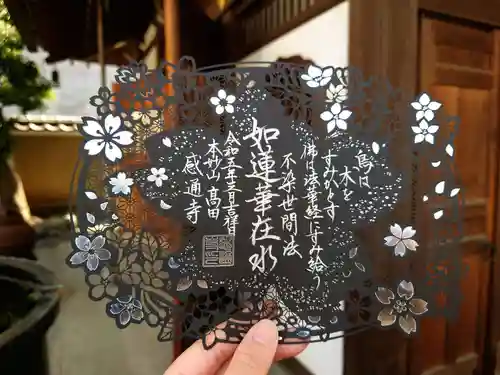 鳥は
木を
すみかとす
佛は法華経にすみ給う
不染世間法
如蓮華在水
令和五年三月吉祥日
本妙山 高田
感通寺